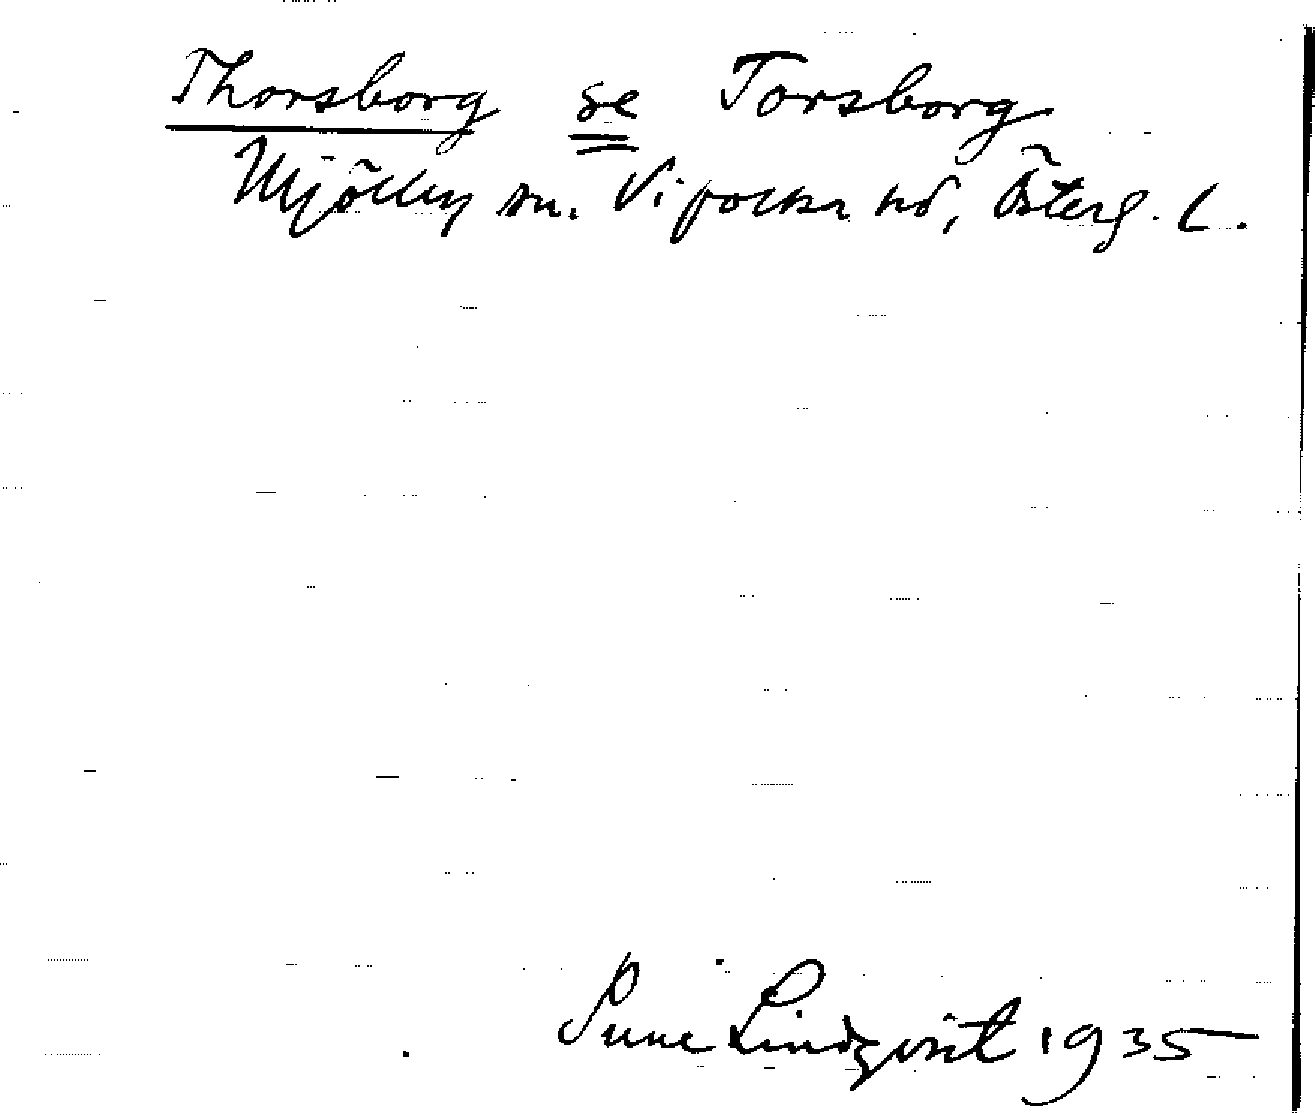 Thorsborg se Torsborg
Mjölby sn. Vifolka hd, Österg. L.
Sune Lindqvist 1935